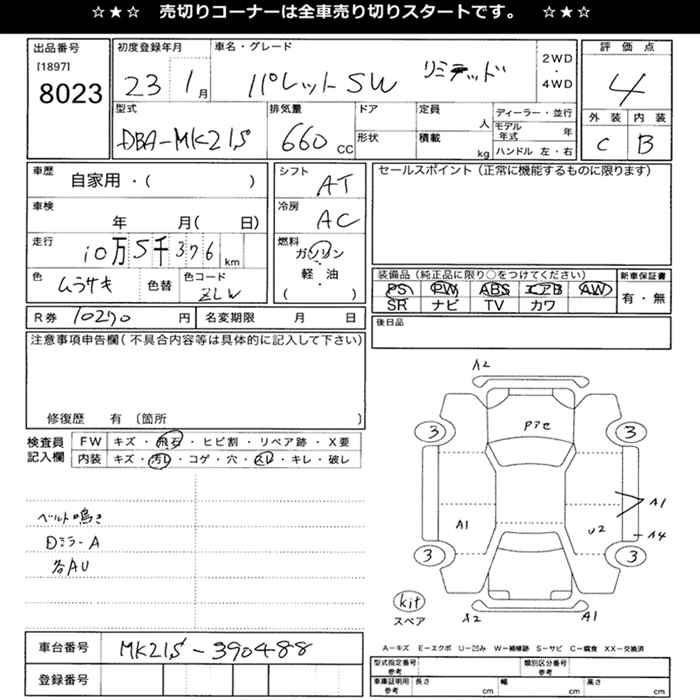 ☆★☆　売切りコーナーは全車売り切りスタートです。　☆★☆
出品番号
[1897]
8023
初度登録年月
23 1月
車名・グレード
パレットSW リミテッド
2WD
・
4WD
評価点
4
外装 内装
C B
型式
DBA-MK21S
排気量
660 CC
ドア
形状
定員 人
積載 kg
ディーラー・並行
モデル年式 年
ハンドル 左・右
車歴
自家用・( )
車検
年 月( 日)
走行
10万5千376 km
色
ムラサキ 色替
色コード
ZLW
シフト
AT
冷房
AC
燃料
ガソリン
軽・油
( )
セールスポイント (正常に機能するものに限ります)
装備品 (純正品に限り○をつけてください)
PS PW ABS エアB AW
SR ナビ TV カワ
新車保証書
有・無
R券 10270 円
名変期限 月 日
後日品
注意事項申告欄(不具合内容等は具体的に記入して下さい)
修復歴 有 〔箇所 〕
検査員記入欄
FW キズ・飛石・ヒビ割・リペア跡・X要
内装 キズ・汚レ・コゲ・穴・スレ・キレ・破レ
ベルト鳴き
Dミラ-A
各AU
A2
3 3
A1 U2
A1
A4
3 3
kit
スペア
A2 A1
車台番号 MK21S-390488
登録番号
A-キズ E-エクボ U-凹み W-補修跡 S-サビ C-腐食 XX-交換済
型式指定番号
参考
類別区分番号
参考
車庫証明用
参考
長さ cm 幅 cm 高さ cm